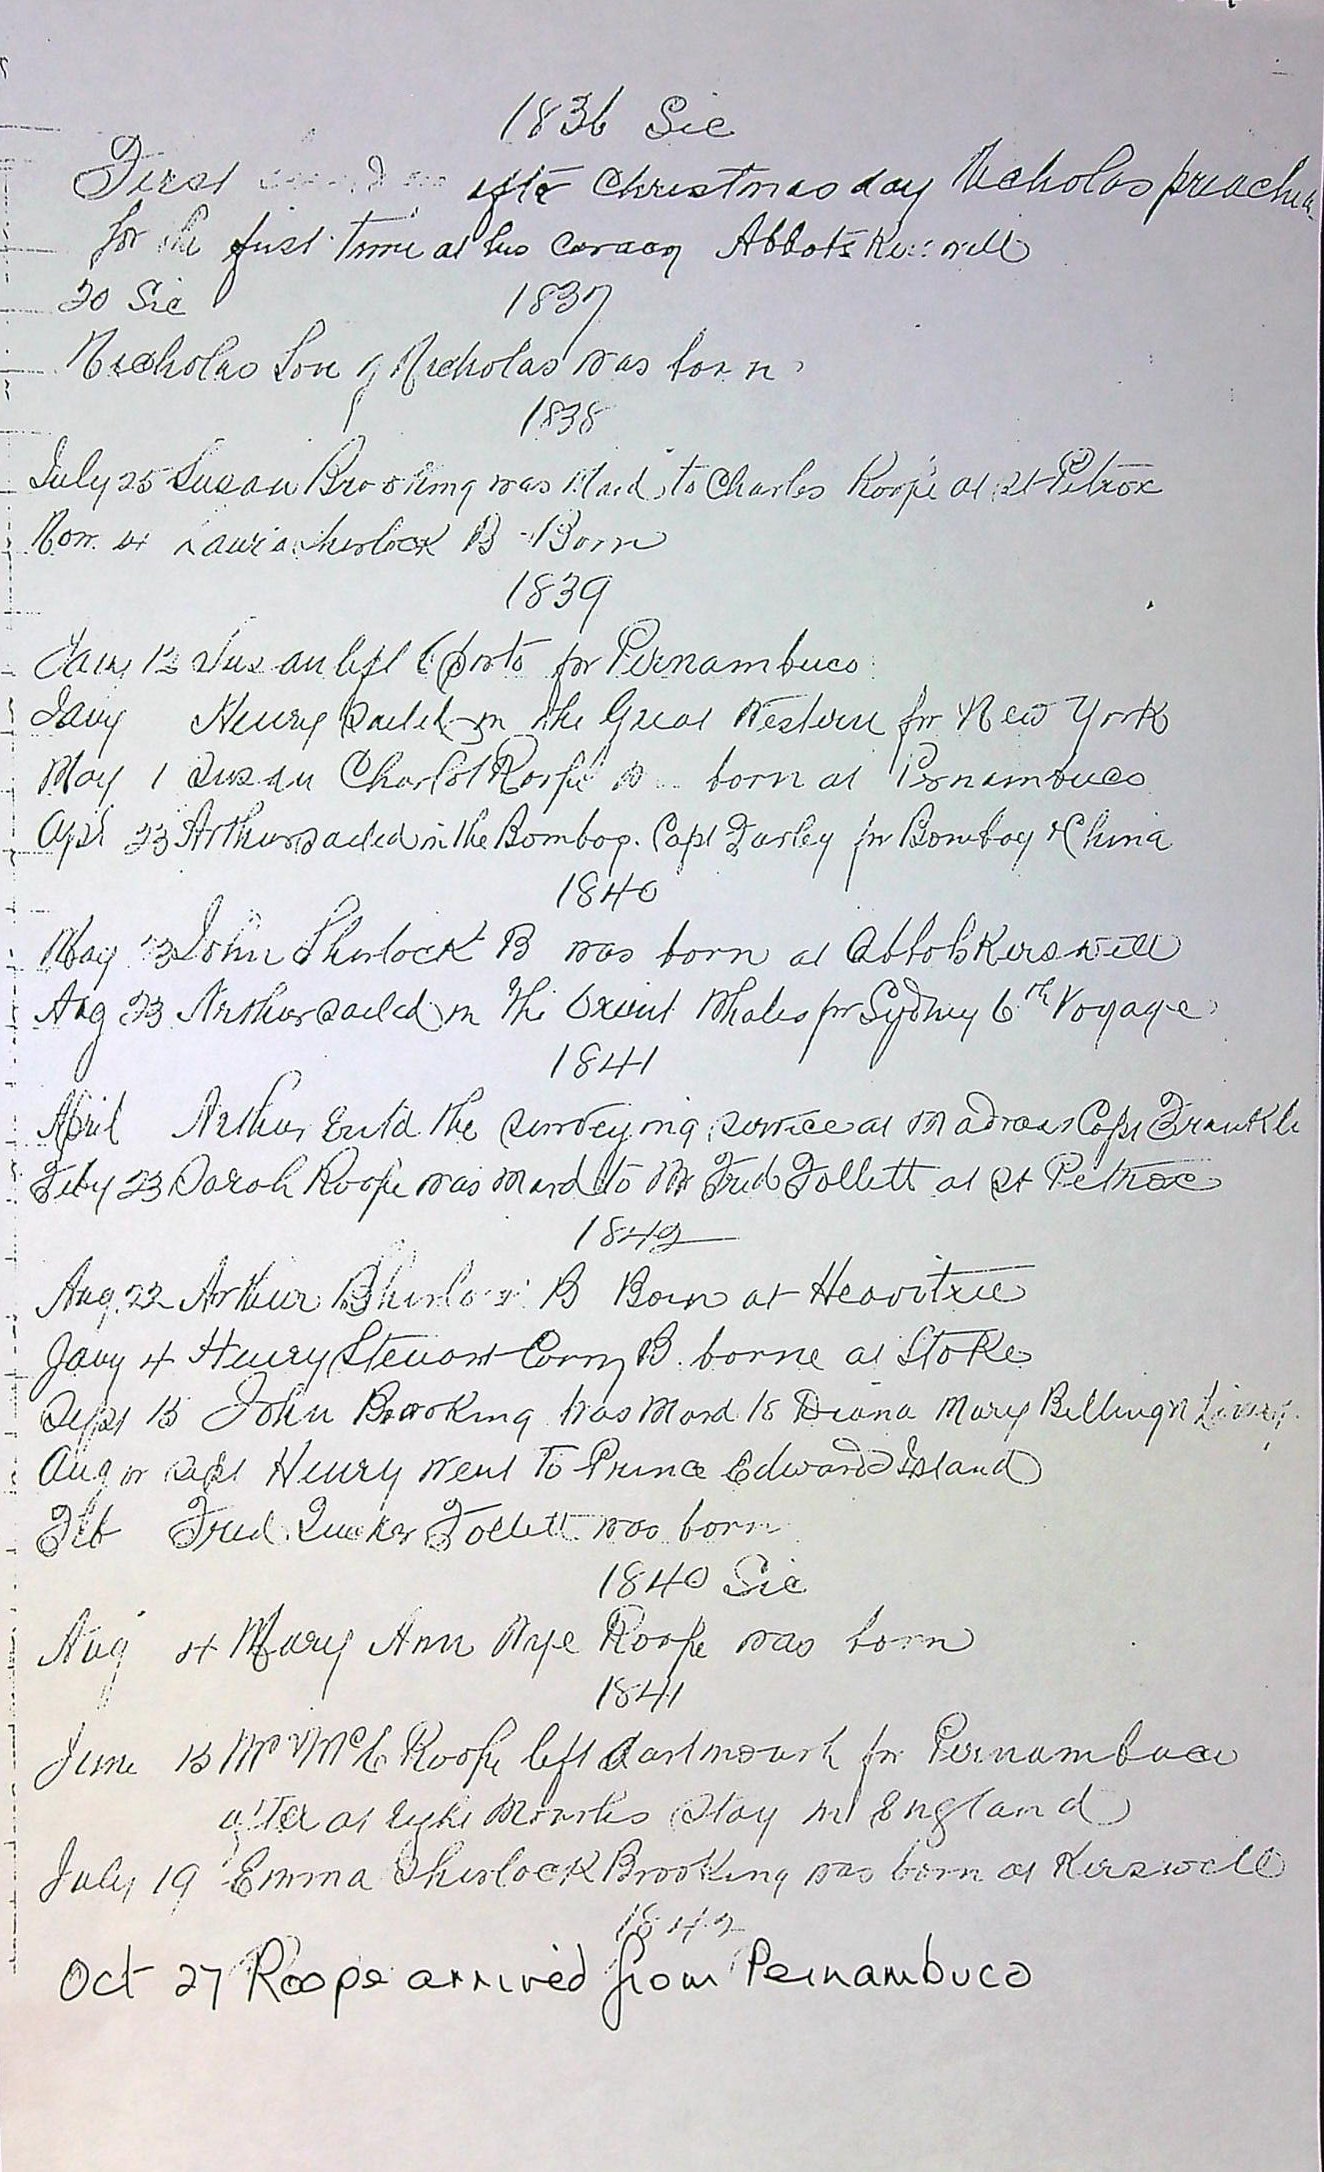 1836 Sic
First after Christmas day Nicholas preached
for the first time at his curacy Abbotskerswell
20 Sic 1837
Nicholas Son of Nicholas was born
1838
July 25 Susan Brooking was Mard to Charles Roope at St Petrox
Nov. 4 Laura Sherlock B Born
1839
Jany 12 Susan left Oporto for Pernambuco
Jany Henry sailed in the Great Western for New York
May 1 Susan Charlot Roope born at Pernambuco
Apl 23 Arthur sailed in the Bombay. Capt Furley for Bombay & China
1840
May 13 John Sherlock B was born at Abbotskerswell
Aug 23 Arthur sailed in the Orient Whales for Sydney 6th Voyage
1841
April Arthur Entd the surveying service at Madras Capt
Feby 23 Sarah Roope was Mard to Mr Fred Follett at St Petrox
1842
Aug. 22 Arthur Sherlock B Born at Heavitree
Jany 4 Henry Steuart Corry B. borne at Stoke
Sept 15 John Brooking was Mard to Diana Mary
Aug or Sept Henry went to Prince Edward Island
Feb Fred. Follett was born
1840 Sic
Aug 4 Mary Ann Nye Roope was born
1841
June 15 Mr & Mrs C Roope left Dartmouth for Pernambuco
after Months Stay in England
July 19 Emma Sherlock Brooking was born at Kerswell
1842
Oct 27 Roope arrived from Pernambuco